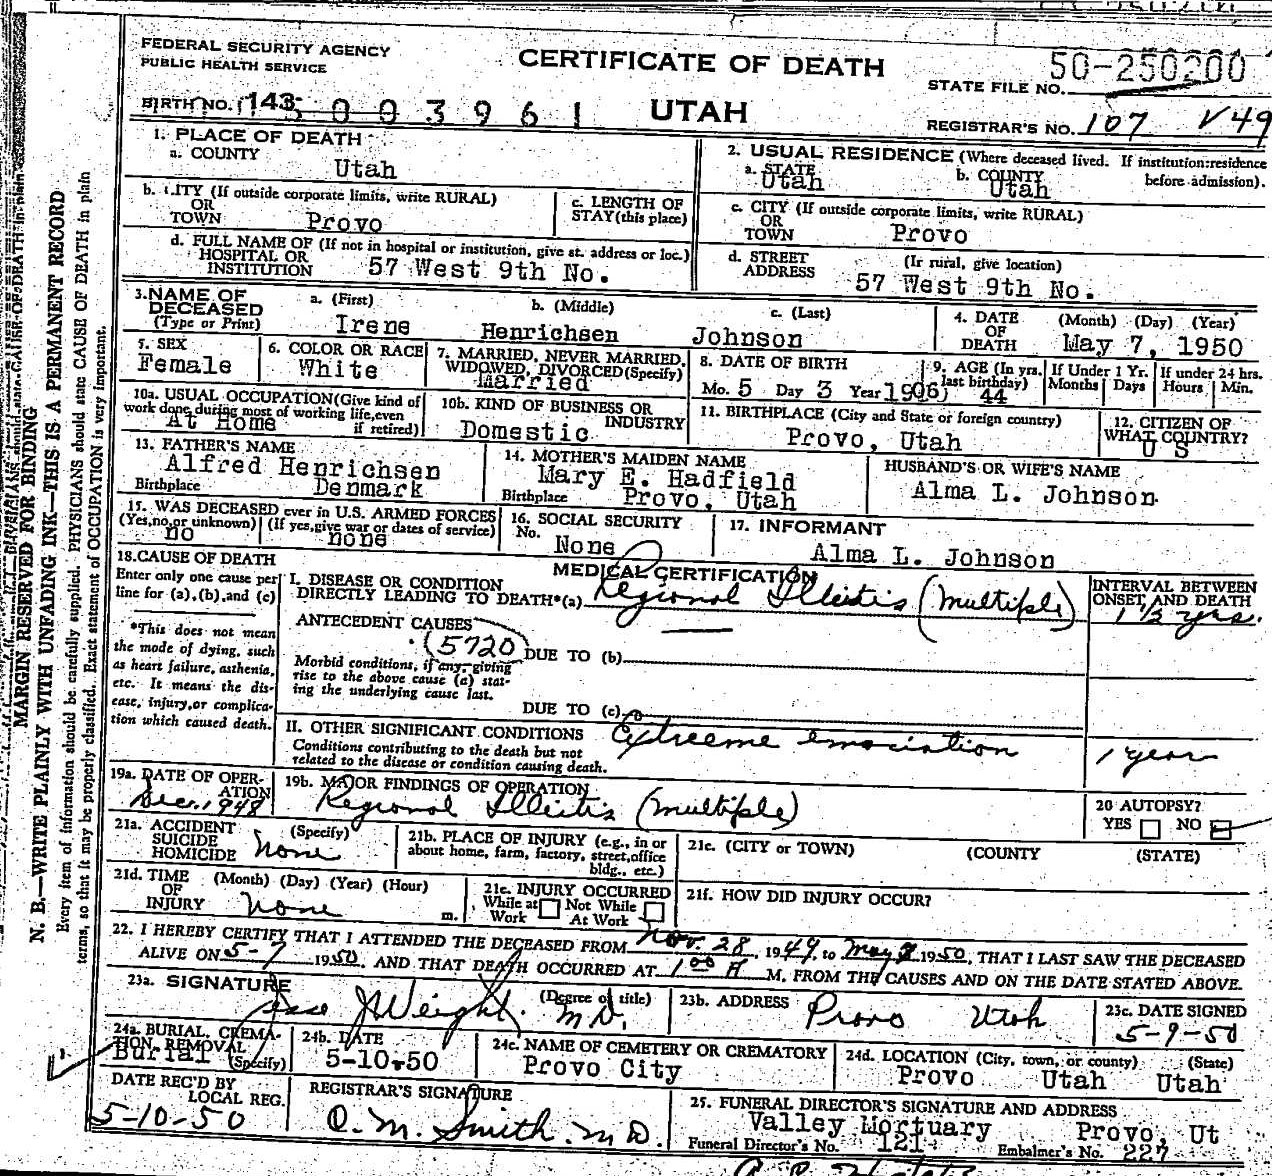 FEDERAL SECURITY AGENCY
PUBLIC HEALTH SERVICE
CERTIFICATE OF DEATH
UTAH
STATE FILE NO. 50-250200
BIRTH NO. 143-
003961
REGISTRAR'S NO. 107 V49
1. PLACE OF DEATH
a. COUNTY
Utah
2. USUAL RESIDENCE (Where deceased lived. If institution:residence before admission).
a. STATE
Utah
b. COUNTY
Utah
b. CITY (If outside corporate limits, write RURAL)
OR
TOWN Provo
c. LENGTH OF
STAY (this place)
c. CITY (If outside corporate limits, write RURAL)
OR
TOWN Provo
d. FULL NAME OF (If not in hospital or institution, give st. address or loc.)
HOSPITAL OR
INSTITUTION 57 West 9th No.
d. STREET (If rural, give location)
ADDRESS 57 West 9th No.
3. NAME OF
DECEASED
(Type or Print)
a. (First) b. (Middle) c. (Last)
Irene Henrichsen Johnson
4. DATE
OF
DEATH
(Month) (Day) (Year)
May 7, 1950
5. SEX
Female
6. COLOR OR RACE
White
7. MARRIED, NEVER MARRIED,
WIDOWED, DIVORCED (Specify)
Married
8. DATE OF BIRTH
Mo. 5 Day 3 Year 1906
9. AGE (In yrs.
last birthday)
44
If Under 1 Yr.
Months Days
If under 24 hrs.
Hours Min.
10a. USUAL OCCUPATION (Give kind of
work done during most of working life, even
if retired)
At Home
10b. KIND OF BUSINESS OR
INDUSTRY
Domestic
11. BIRTHPLACE (City and State or foreign country)
Provo, Utah
12. CITIZEN OF
WHAT COUNTRY?
U S
13. FATHER'S NAME
Alfred Henrichsen
Birthplace Denmark
14. MOTHER'S MAIDEN NAME
Mary E. Hadfield
Birthplace Provo, Utah
HUSBAND'S OR WIFE'S NAME
Alma L. Johnson
15. WAS DECEASED ever in U.S. ARMED FORCES
(Yes, no, or unknown) (If yes, give war or dates of service)
no none
16. SOCIAL SECURITY
No.
None
17. INFORMANT
Alma L. Johnson
18. CAUSE OF DEATH
Enter only one cause per
line for (a), (b), and (c)
*This does not mean
the mode of dying, such
as heart failure, asthenia,
etc. It means the dis-
ease, injury, or complica-
tion which caused death.
MEDICAL CERTIFICATION
I. DISEASE OR CONDITION
DIRECTLY LEADING TO DEATH*(a) Regional Illeitis (multiple)
INTERVAL BETWEEN
ONSET AND DEATH
1½ yrs.
ANTECEDENT CAUSES
(5720)
DUE TO (b)
Morbid conditions, if any, giving
rise to the above cause (a) stat-
ing the underlying cause last.
DUE TO (c)
II. OTHER SIGNIFICANT CONDITIONS
Conditions contributing to the death but not
related to the disease or condition causing death.
Extreeme emaciation
1 year
19a. DATE OF OPER-
ATION
Dec. 1948
19b. MAJOR FINDINGS OF OPERATION
Regional Illeitis (multiple)
20 AUTOPSY?
YES NO
21a. ACCIDENT
SUICIDE
HOMICIDE
(Specify)
none
21b. PLACE OF INJURY (e.g., in or
about home, farm, factory, street, office
bldg., etc.)
21c. (CITY or TOWN) (COUNTY (STATE)
21d. TIME
OF
INJURY
(Month) (Day) (Year) (Hour)
none m.
21e. INJURY OCCURRED
While at Work Not While At Work
21f. HOW DID INJURY OCCUR?
22. I HEREBY CERTIFY THAT I ATTENDED THE DECEASED FROM Nov. 28, 1949, to May 7 1950, THAT I LAST SAW THE DECEASED
ALIVE ON 5-7 1950, AND THAT DEATH OCCURRED AT 1 00 A M. FROM THE CAUSES AND ON THE DATE STATED ABOVE.
23a. SIGNATURE (Degree of title)
J Weight. M.D.
23b. ADDRESS
Provo Utah
23c. DATE SIGNED
5-9-50
24a. BURIAL, CREMA-
TION, REMOVAL
(Specify)
Burial
24b. DATE
5-10-50
24c. NAME OF CEMETERY OR CREMATORY
Provo City
24d. LOCATION (City, town, or county) (State)
Provo Utah Utah
DATE REC'D BY
LOCAL REG.
5-10-50
REGISTRAR'S SIGNATURE
O. M. Smith. M D.
25. FUNERAL DIRECTOR'S SIGNATURE AND ADDRESS
Valley Mortuary Provo, Ut
Funeral Director's No. 121 Embalmer's No. 227
MARGIN RESERVED FOR BINDING
N. B.—WRITE PLAINLY WITH UNFADING INK—THIS IS A PERMANENT RECORD
Every item of information should be carefully supplied. PHYSICIANS should state CAUSE OF DEATH in plain
terms, so that it may be properly classified. Exact statement of OCCUPATION is very important.